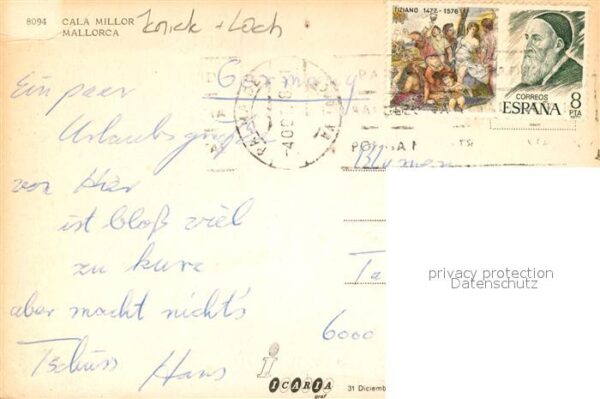 8094 CALA MILLOR
MALLORCA
Knick + Loch
TIZIANO 1477 - 1576
CORREOS
ESPAÑA 8
PTA
Germany
Ein paar
Urlaubsgrüße
von Hier
ist bloß viel
zu kurz
aber macht nicht's
Tschüss Hans
Blumen
Ta
6000
PALMA
privacy protection
Datenschutz
i
ICARIA
graf
31 Diciemb